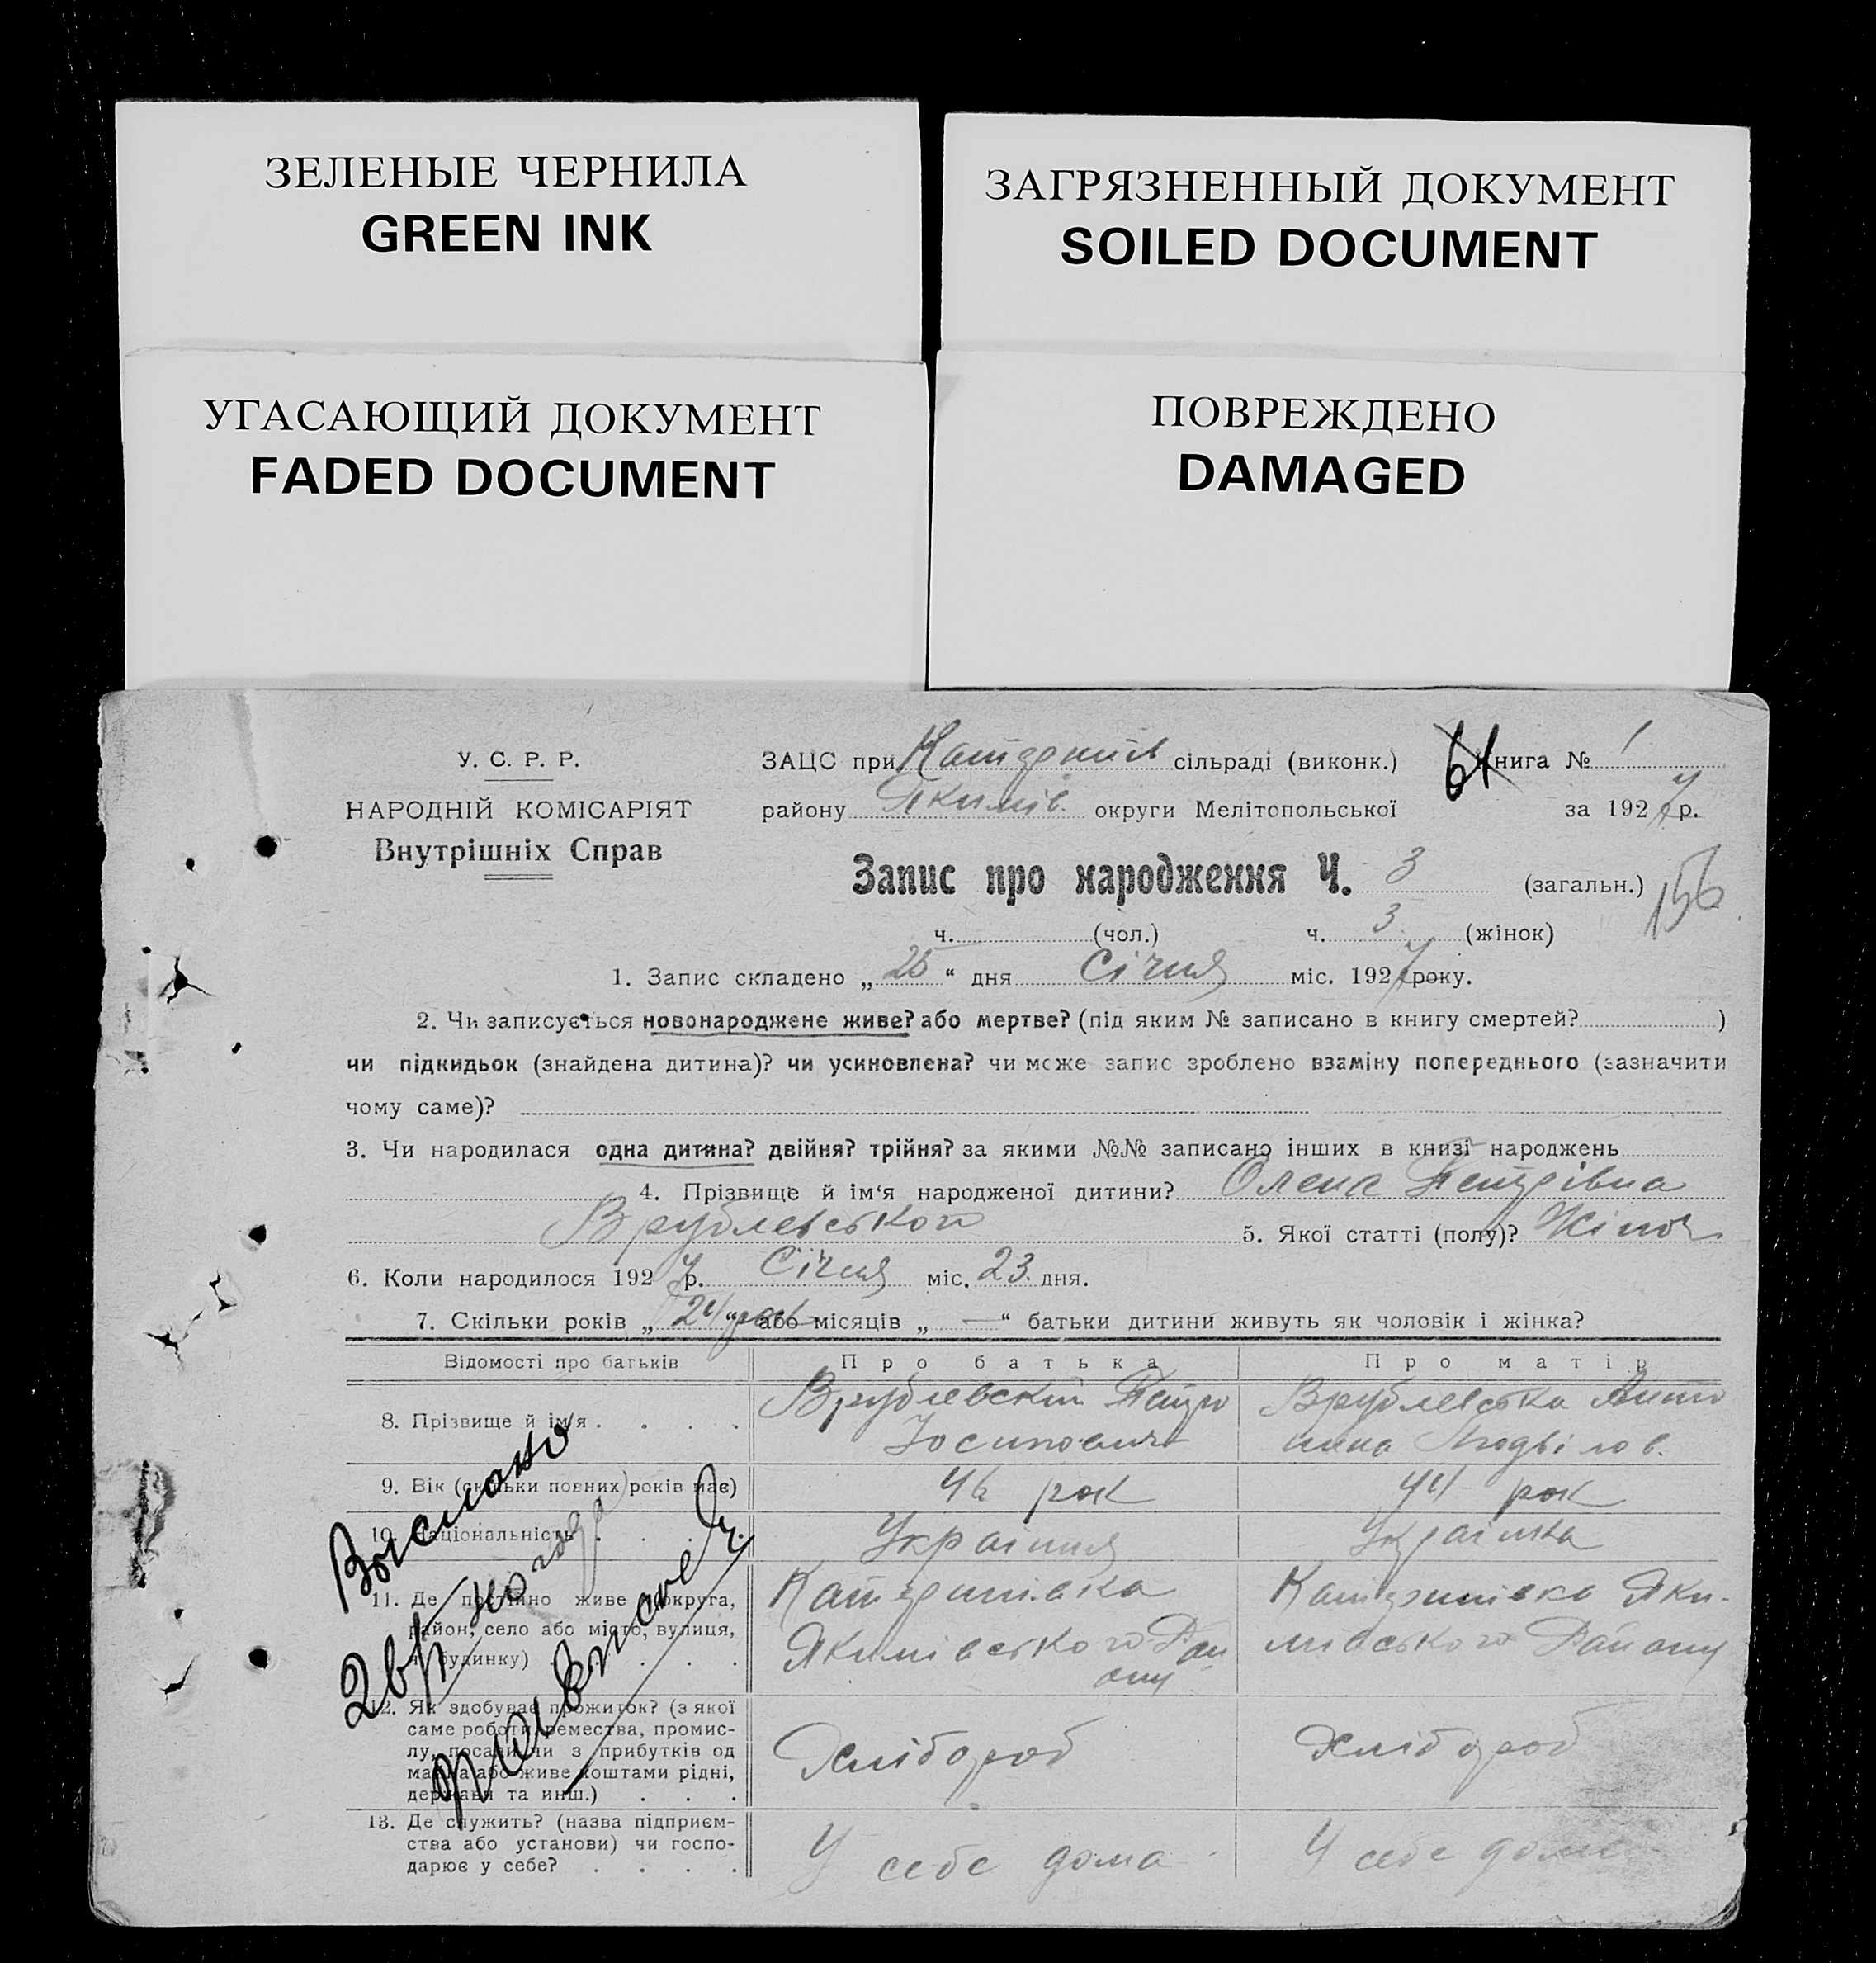 ЗЕЛЕНЫЕ ЧЕРНИЛА
GREEN INK
ЗАГРЯЗНЕННЫЙ ДОКУМЕНТ
SOILED DOCUMENT
УГАСАЮЩИЙ ДОКУМЕНТ
FADED DOCUMENT
ПОВРЕЖДЕНО
DAMAGED
У. С. Р. Р.
НАРОДНІЙ КОМІСАРІЯТ
Внутрішніх Справ
ЗАЦС при сільраді (виконк.) 61 Книга № 1
району Якимів. округи Мелітопольської за 1927 р.
Запис про народження Ч. 3 (загальн.) 156
ч. (чол.) ч. 3 (жінок)
1. Запис складено „ 25 “ дня Січня міс. 1927 року.
2. Чи записується новонароджене живе? або мертве? (під яким № записано в книгу смертей? )
чи підкидьок (знайдена дитина)? чи усиновлена? чи може запис зроблено взаміну попереднього (зазначити
чому саме)?
3. Чи народилася одна дитина? двійня? трійня? за якими №№ записано інших в книзі народжень
4. Прізвище й ім‘я народженої дитини? Олена Петрівна
Врублевського 5. Якої статті (полу)? Жіноч
6. Коли народилося 1927 р. Січня міс. 23 дня.
7. Скільки років „ 24 “ або місяців „ — “ батьки дитини живуть як чоловік і жінка?
Відомості про батьків Про батька Про матір
8. Прізвище й ім‘я . . . . Врублевский Петро Врублевська Анто
Йосипович нина
9. Вік (скільки повних років має) 46 рок 44 рок
10. Національність . . . . Украінця Украінка
11. Де постійно живе (округа, Катеринівка Катеринівка Яки-
район, село або місто, вулиця, Якимівського Рай мівського Району
№ будинку) . . . . ону
12. Як здобуває прожиток? (з якої
саме роботи, ремества, промис-
лу, посади чи з прибутків од Хлібороб Хлібороб
майна або живе коштами рідні,
держави та инш.) . . .
13. Де служить? (назва підприєм-
ства або установи) чи госпо- У себе дома У себе дома
дарює у себе? . . . .